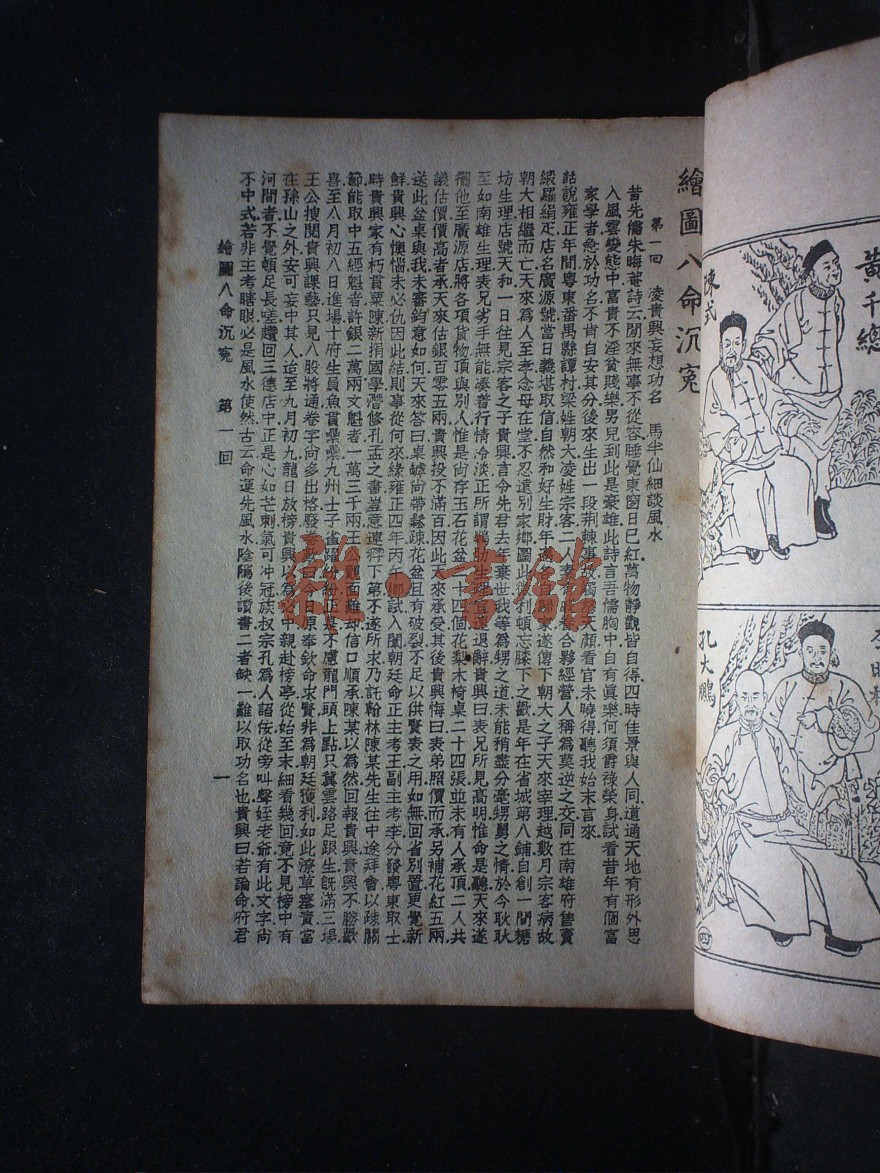 繪圖八命沉寃
第一回 凌貴興妄想功名 馬半仙細談風水
昔先儒朱晦菴詩云閒來無事不從容睡覺東窗日已紅萬物靜觀皆自得四時佳景與人同道通天地有形外思
入風雲變態中富貴不淫貧賤樂男兒到此是豪雄此詩言吾儒胸中自有眞樂何須爵祿榮身試看昔年有個富
家學者急於功名不肯自安其分後來生出一段荆棘事故觸天顏看官未曉得聽我始末言來
話說雍正年間粵東番禺縣譚村梁姓朝大凌姓宗客二人合夥經營人稱爲莫逆之交同在南雄府售賣
緞羅絹疋店名廣源號當日義堪取信自然和好生財年遂傳下朝大之子天來宰理越數月宗客病故
朝大相繼而亡天來爲人至孝念母在堂不忍遠別家鄉圖此微利頓忘膝下之歡是年在省城第八鋪自創一間糖
坊生理店號天和一日往見宗客之子貴興言令先君去年棄世我等爲甥之道未能稍盡分毫甥舅之情於今耿耿
至如南雄生理表兄劣手無能凑着行情冷淡正所謂生理宜退辭貴興曰表兄所見高明惟命是聽天來遂
僱他至廣源店將各項貨物頂與別人惟是尚存玉石花盆十四個花梨木椅桌二十四張並未有人承頂二人共
議估價價高者承天來估銀百零五兩貴興投不滿百因此天來承受其後貴興悔曰表弟照價而承另補花紅五兩
送此盆桌與我未審鈞意如何天來答曰桌罅尚帶鬆疎花盆且有破裂不足以供賢表之用如無回省別置更覺新
鮮貴興心懊惱未必仇因此結則事從何來緣雍正四年丙午鄉試入闈朝廷命正主考王副主考李分發粵東取士
時貴興家有朽貫粟陳新捐國學潛修孔孟之書豈意連科下第不遂所求乃託翰林陳某先生往中途拜會以疎關
節能取中五經魁者許銀二萬兩文魁者一萬三千兩王公觀面難却信口順承陳某以爲然回報貴興貴興不勝歡
喜至八月初八日進場十府生員魚貫纍纍九州士子雀躍紛紛正是不慮龍門頭上點只冀雲路足跟生旣滿三場
王公搜閱貴興課藝只見八股將通卷字尚多出格廢卷曰今日原奉欽命求賢非爲朝廷獲利如此潦草塞責富
在孫山之外安可妄中其人迨至九月初九龍日放榜貴興以爲必中親赴榜亭從始至末細看幾回竟不見榜中有
河間者不覺頓足長嗟趲回三德店中正是心如芒刺氣可冲冠族叔宗孔爲人謟侫從旁叫聲姪老爺有此文字尚
不中式若非主考瞎眼必是風水使然古云命運先風水陰隲後讀書二者缺一難以取功名也貴興曰若論命府君
繪圖八命沉寃 第一回 一
黃千總
陳式
孔大鵬
四